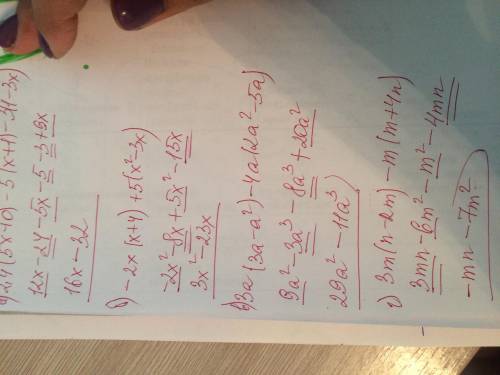 -5(x+1)-3(1-3x)
12x-24-5x-5-3+9x
16x-32
б) -2x(x+4)+5(x²-3x)
-2x²-8x+5x²-15x
3x²-23x
в) 3a(3a-a²)-4a(2a²-5a)
9a²-3a³-8a³+20a²
29a²-11a³
г) 3m(n-2m)-m(m+4n)
3mn-6m²-m²-4mn
-mn-7m²